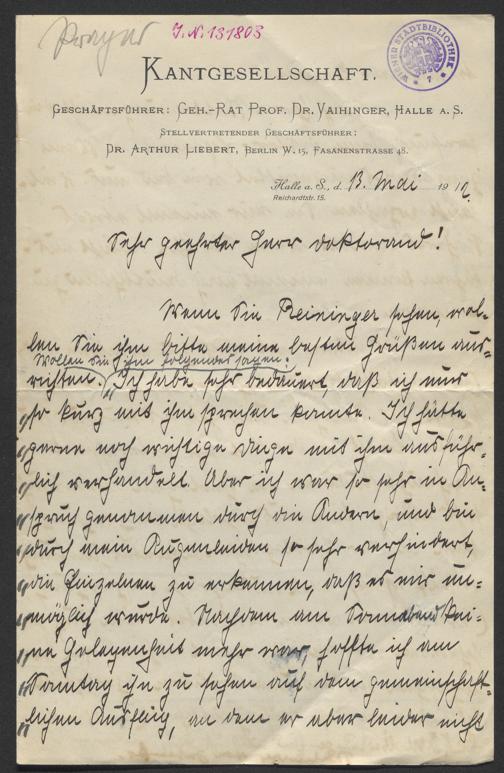 Prager
I.N. 131803
WIENER STADTBIBLIOTHEK
* 7 *
KANTGESELLSCHAFT.
GESCHÄFTSFÜHRER: GEH.-RAT PROF. DR. VAIHINGER, HALLE A. S.
STELLVERTRETENDER GESCHÄFTSFÜHRER:
DR. ARTHUR LIEBERT, BERLIN W. 15, FASANENSTRASSE 48.
Halle a. S., d. 13. Mai 1912.
Reichardtstr. 15.
Sehr geehrter Herr Doktorand!
Wenn Sie Reininger sehen, wol-
len Sie ihm bitte meine besten Grüßen aus-
Wollen Sie ihm folgendes sagen:
richten. „Ich habe sehr bedauert, daß ich nur
„so kurz mit ihm sprechen konnte. Ich hätte
„gerne noch wichtige Dinge mit ihm ausführ-
„lich verhandelt. Aber ich war so sehr in An-
„spruch genommen durch die Andern, und bin
„durch mein Augenleiden so sehr verhindert,
„die Einzelnen zu erkennen, daß es mir un-
„möglich wurde. Nachdem am Sonnabend kei-
„ne Gelegenheit mehr war, hoffte ich am
„Sonntag ihn zu sehen auf dem gemeinschaft-
„lichen Ausflug, an dem er aber leider nicht